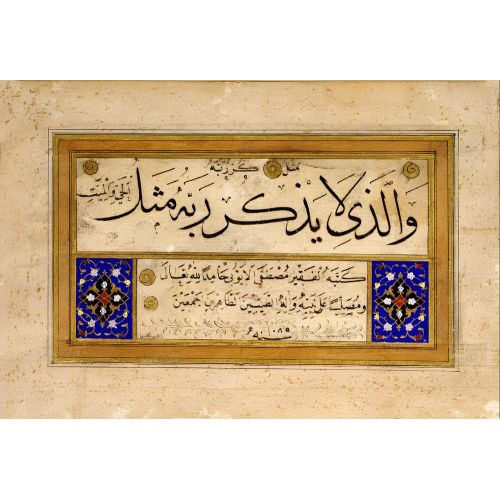 مثل كر ربه
والذي لا يذكر ربه مثل
الحي والميت
كتبه الفقير مصطفى الايوبي حامدا لله تعالى
ومصليا على نبيه واله الطيبين الطاهرين اجمعين
سنه ١٠٨٩